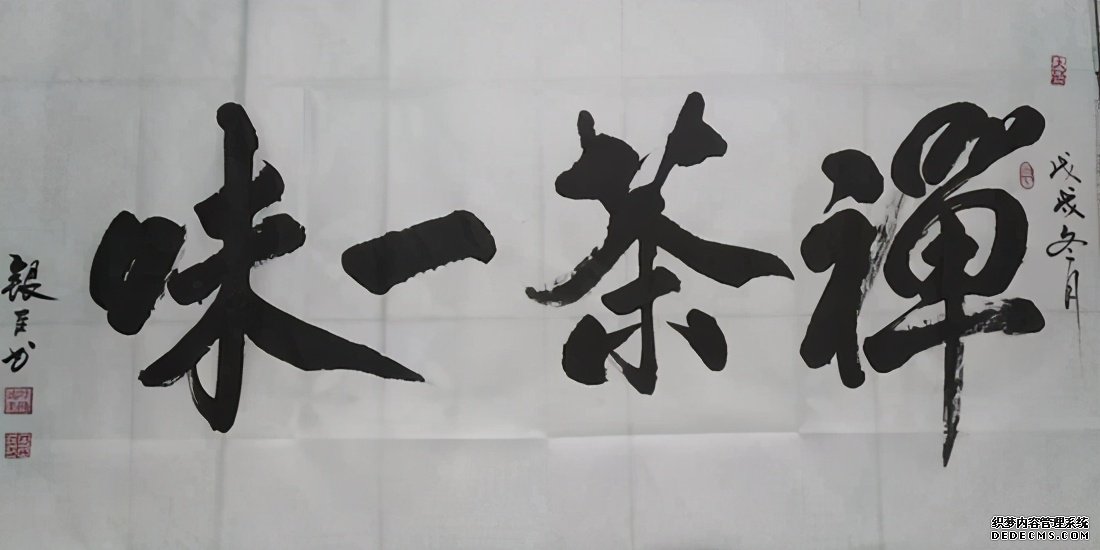 禪茶一味
戊戌冬月
銀臣书
织梦内容管理系统
DEDECMS.COM